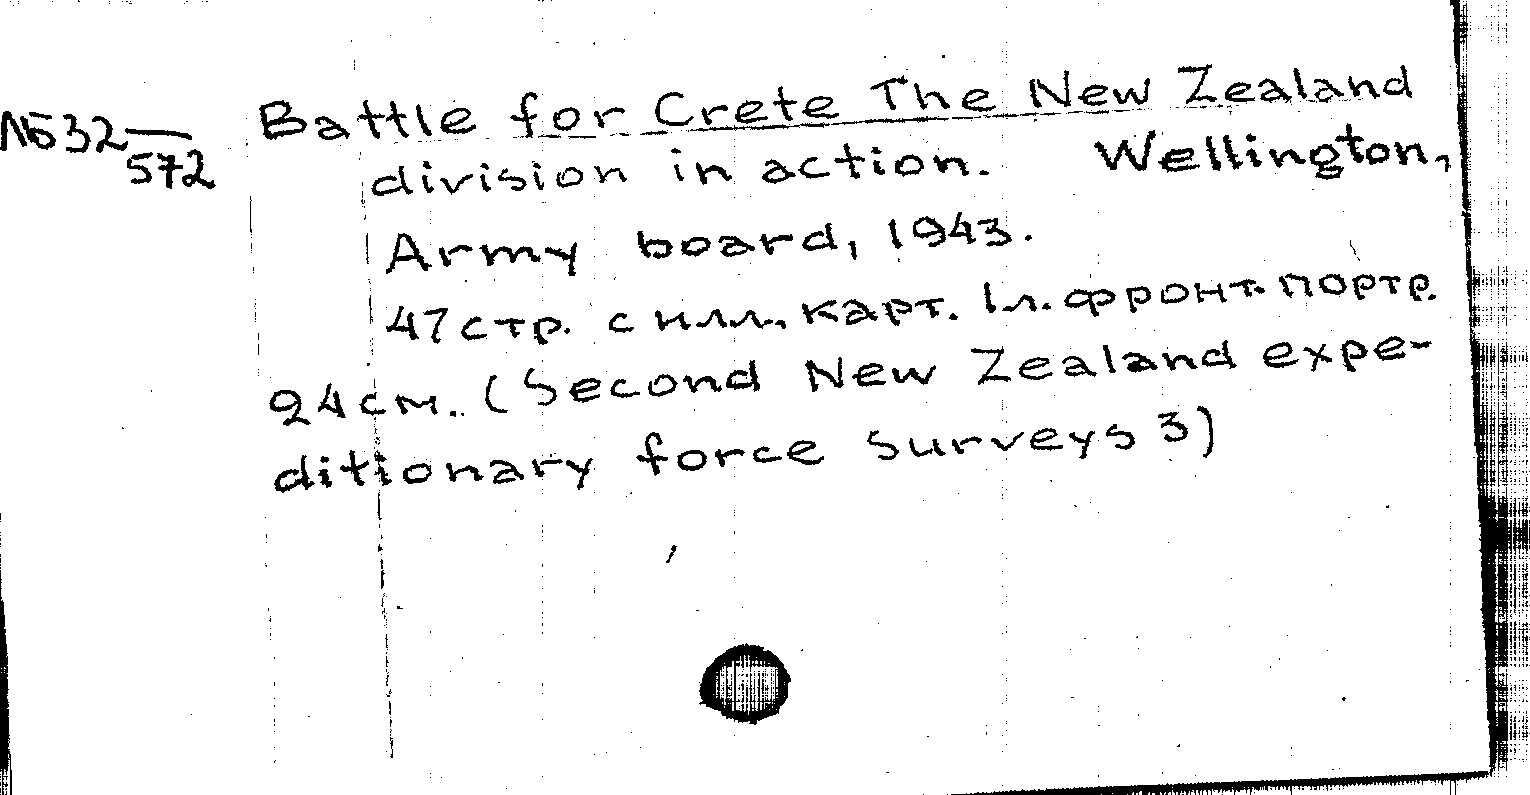 Battle for Crete The New Zealand
N532
572
division in action. Wellington,
Army board, 1943.
47 стр. с илл., карт. 1 л. фронт. портр.
24 см. (Second New Zealand expe-
ditionary force surveys 3)